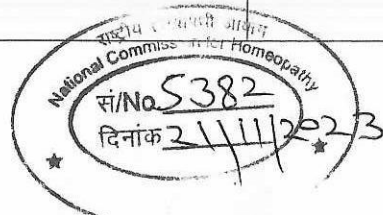 राष्ट्रीय आयोग
National Commission for Homeopathy
सं/No 5382
दिनांक 21/11/2023